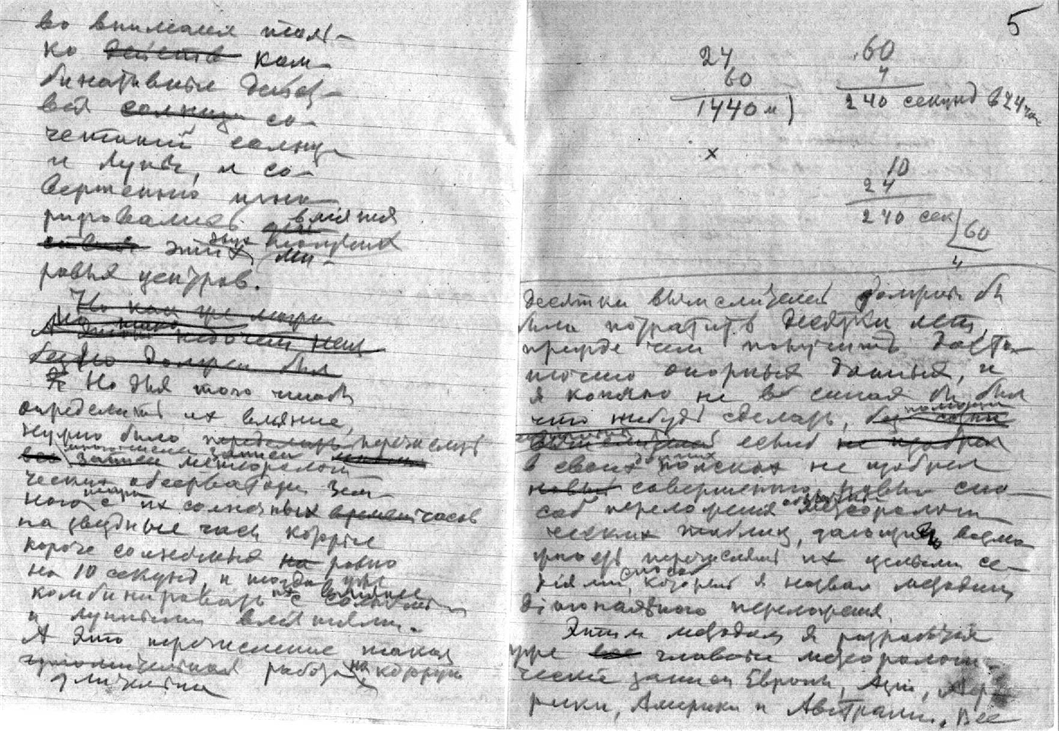 во внимания толь-
ко действ ком-
бинативные дейст-
вия солнца со-
четаний солнца
и луны, и со-
вершенно игно-
рировались влияния
этих двух
ровья центров.
Но как же
А
было должен был
Но для того чтобы
определить их влияние,
нужно было переделать перечислить
все записи метеорологи-
ческих обсерваторий зем-
ного шара с их солнечных времен часов
на звездные часы которые
короче солнечных на ровно
на 10 секунд, и тогда уже
комбинировать их с солнечными
и лунными влияниями.
А это перечисление такая
работа, на которую
5
24
60
1440 м
60
4
240 секунд в 24 час
x
10
24
240 сек
60
4
десятки вычислителей должны бы
были потратить десятки лет,
прежде чем получить доста-
точно опорных данных, и
я конечно не в силах бы был
что нибудь сделать, без помощи
еслиб не изобрел
в своих поисках не изобрел
новый совершенно новый спо-
соб переложения метеорологи-
ческих таблиц, дающий возмо-
жность перечислять их целыми се-
риями, способ, который я назвал методом
диагонального переложения.
Этим методом я разработал
уже все главные метеорологи-
ческие записи Европы, Азии, Аф-
рики, Америки и Австралии. Все